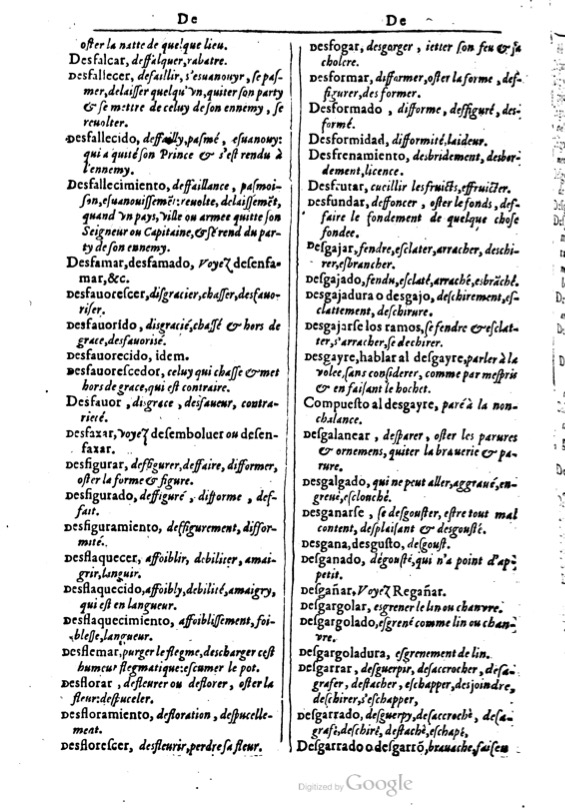 De
oster la natte de quelque lieu.
Desfalcar, deffalquer, rabatre.
Desfallecer, defaillir, s'esuanouyr, se pas-
mer, delaisser quelqu'vn, quiter son party
& se mettre de celuy de son ennemy, se
reuolter.
Desfallecido, deffailly, pasmé, esuanouy:
qui a quité son Prince & s'est rendu à
l'ennemy.
Desfallecimiento, deffaillance, pasmoi-
son, esuanouissemẽt: reuolte, delaissemẽt,
quand vn pays, ville ou armee quitte son
Seigneur ou Capitaine, & se rend du par-
ty de son ennemy.
Desfamar, desfamado, Voyez desenfa-
mar, &c.
Desfauorescer, disgracier, chasser, desfauo-
riser.
Desfauorido, disgracié, chassé & hors de
grace, desfauorisé.
Desfauorecido, idem.
Desfauorescedor, celuy qui chasse & met
hors de grace, qui est contraire.
Desfauor, disgrace, desfaueur, contra-
rieté.
Desfaxar, voyez desemboluer ou desen-
faxar.
Desfigurar, deffigurer, deffaire, difformer,
oster la forme & figure.
Desfigurado, deffiguré, difforme, def-
fait.
Desfiguramiento, deffigurement, diffor-
mité.
Desflaquecer, affoiblir, debiliter, amai-
grir, languir.
Desflaquecido, affoibly, debilité, amaigry,
qui est en langueur.
Desflaquecimiento, affoiblissement, foi-
blesse, langueur.
Desflemar, purger le flegme, descharger cest
humeur flegmatique: escumer le pot.
Desflorar, desfleurer ou deflorer, oster la
fleur: despuceler.
Desfloramiento, defloration, despucelle-
ment.
Desflorescer, desfleurir, perdre sa fleur.
De
Desfogar, desgorger, ietter son feu & sa
cholere.
Desformar, difformer, oster la forme, def-
figurer, desformer.
Desformado, difforme, deffiguré, des-
formé.
Desformidad, difformité, laideur.
Desfrenamiento, desbridement, desbor-
dement, licence.
Desfrutar, cueillir les fruicts, effruicter.
Desfundar, deffoncer, oster le fonds, def-
faire le fondement de quelque chose
fondee.
Desgajar, fendre, esclater, arracher, deschi-
rer, esbrancher.
Desgajado, fendu, esclaté, arraché, esbrãché.
Desgajadura o desgajo, deschirement, es-
clattement, deschirure.
Desgajarse los ramos, se fendre & esclat-
ter, s'arracher, se dechirer.
Desgayre, hablar al desgayre, parler à la
volee, sans considerer, comme par mespris
& en faisant le hochet.
Compuesto al desgayre, paré à la non-
chalance.
Desgalanear, desparer, oster les parures
& ornemens, quiter la brauerie & pa-
rure.
Desgalgado, qui ne peut aller, aggraué, en-
greué, esclouché.
Desganarse, se desgouster, estre tout mal
content, desplaisant & desgousté.
Desgana, desgusto, desgoust.
Desganado, dégousté, qui n'a point d'ap-
petit.
Desgañar, Voyez Regañar.
Desgargolar, esgrener le lin ou chanvre.
Desgargolado, esgrené comme lin ou chan-
vre.
Desgargoladura, esgrenement de lin.
Desgarrar, desguerpir, desaccrocher, desa-
grafer, destacher, eschapper, desjoindre,
deschirer, s'eschapper,
Desgarrado, desguerpy, desaccroché, desa-
grafé, deschiré, destaché, eschapé,
Desgarrado o desgarrõ, brauache, faiseu
Digitized by Google